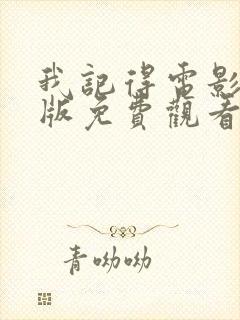 我記得電影
版免費觀看
青呦呦